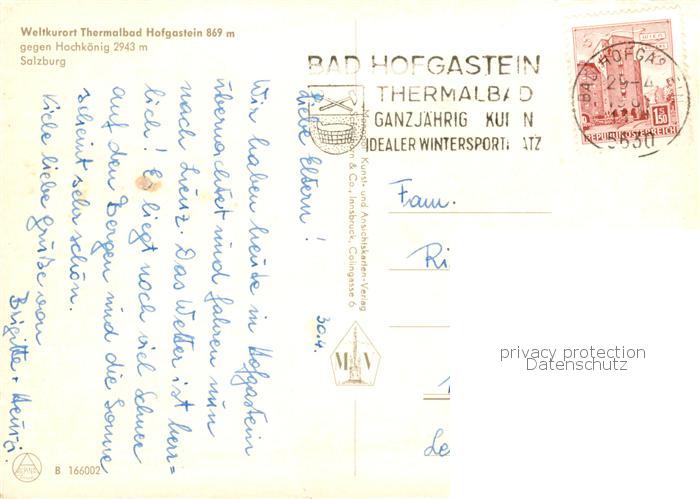 Weltkurort Thermalbad Hofgastein 869 m
gegen Hochkönig 2943 m
Salzburg
BAD HOFGASTEIN
THERMALBAD
GANZJÄHRIG KU N
IDEALER WINTERSPORT ATZ
BAD HOFGAS
5630
1.50
REPUBLIK ÖSTERREICH
30.4.
Liebe Eltern!
Wir haben heute in Hofgastein
übernachtet und fahren nun
nach Lienz. Das Wetter ist herr=
lich! Es liegt noch viel Schnee
auf den Bergen und die Sonne
scheint sehr schön.
Viele liebe Grüße von
Brigitte + Heinz.
Kunst- und Ansichtskarten-Verlag
& Co., Innsbruck, Colingasse 6
M V
Fam.
Ri
Le
privacy protection
Datenschutz
B 166002